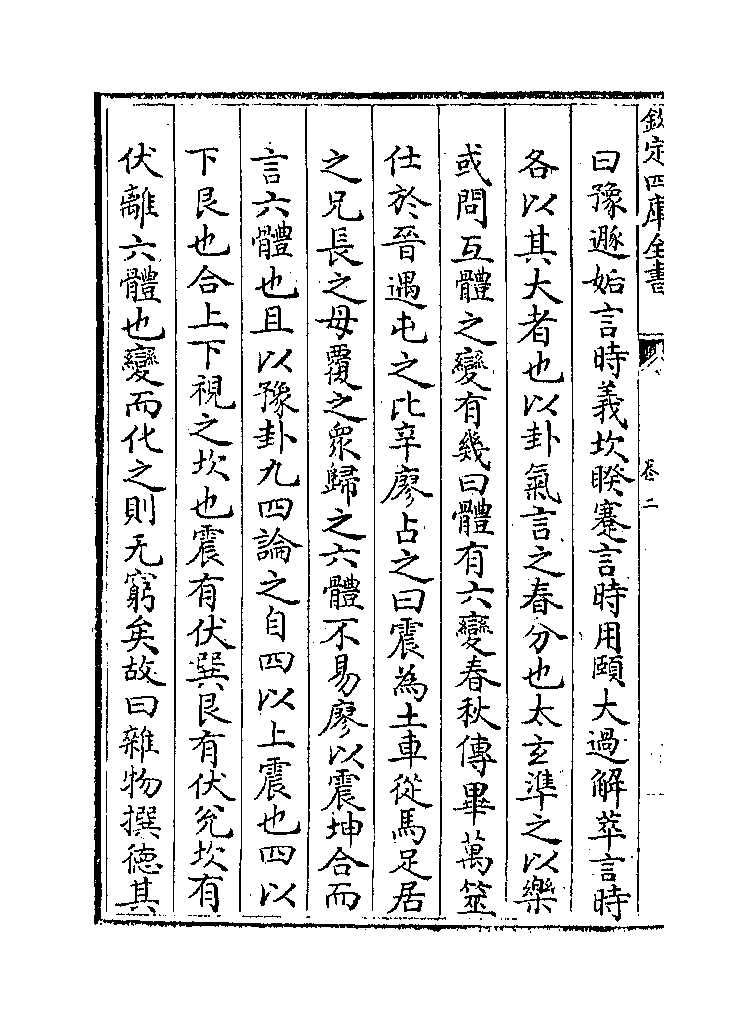 欽定四庫全書
卷二
曰豫遯姤言時義坎睽蹇言時用頤大過解萃言時
各以其大者也以卦氣言之春分也太玄準之以樂
或問互體之變有幾曰體有六變春秋傳畢萬筮
仕於晉遇屯之比辛廖占之曰震為土車從馬足居
之兄長之母覆之衆歸之六體不易廖以震坤合而
言六體也且以豫卦九四論之自四以上震也四以
下艮也合上下視之坎也震有伏巽艮有伏兊坎有
伏離六體也變而化之則无窮矣故曰雜物撰德其